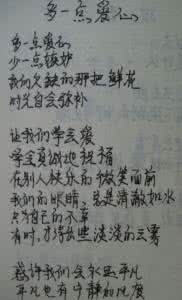 多一点爱心
多一点爱心
少一点嫉妒
我们欠缺的那把鲜花
时光自会弥补
让我们学会爱
学会真诚地祝福
在别人快乐的微笑面前
我们的眼睛，总是清澈如水
只为自己的不幸
有时，才浮出些淡淡的云雾
或许我们会永远平凡
平凡也有宁静的风度